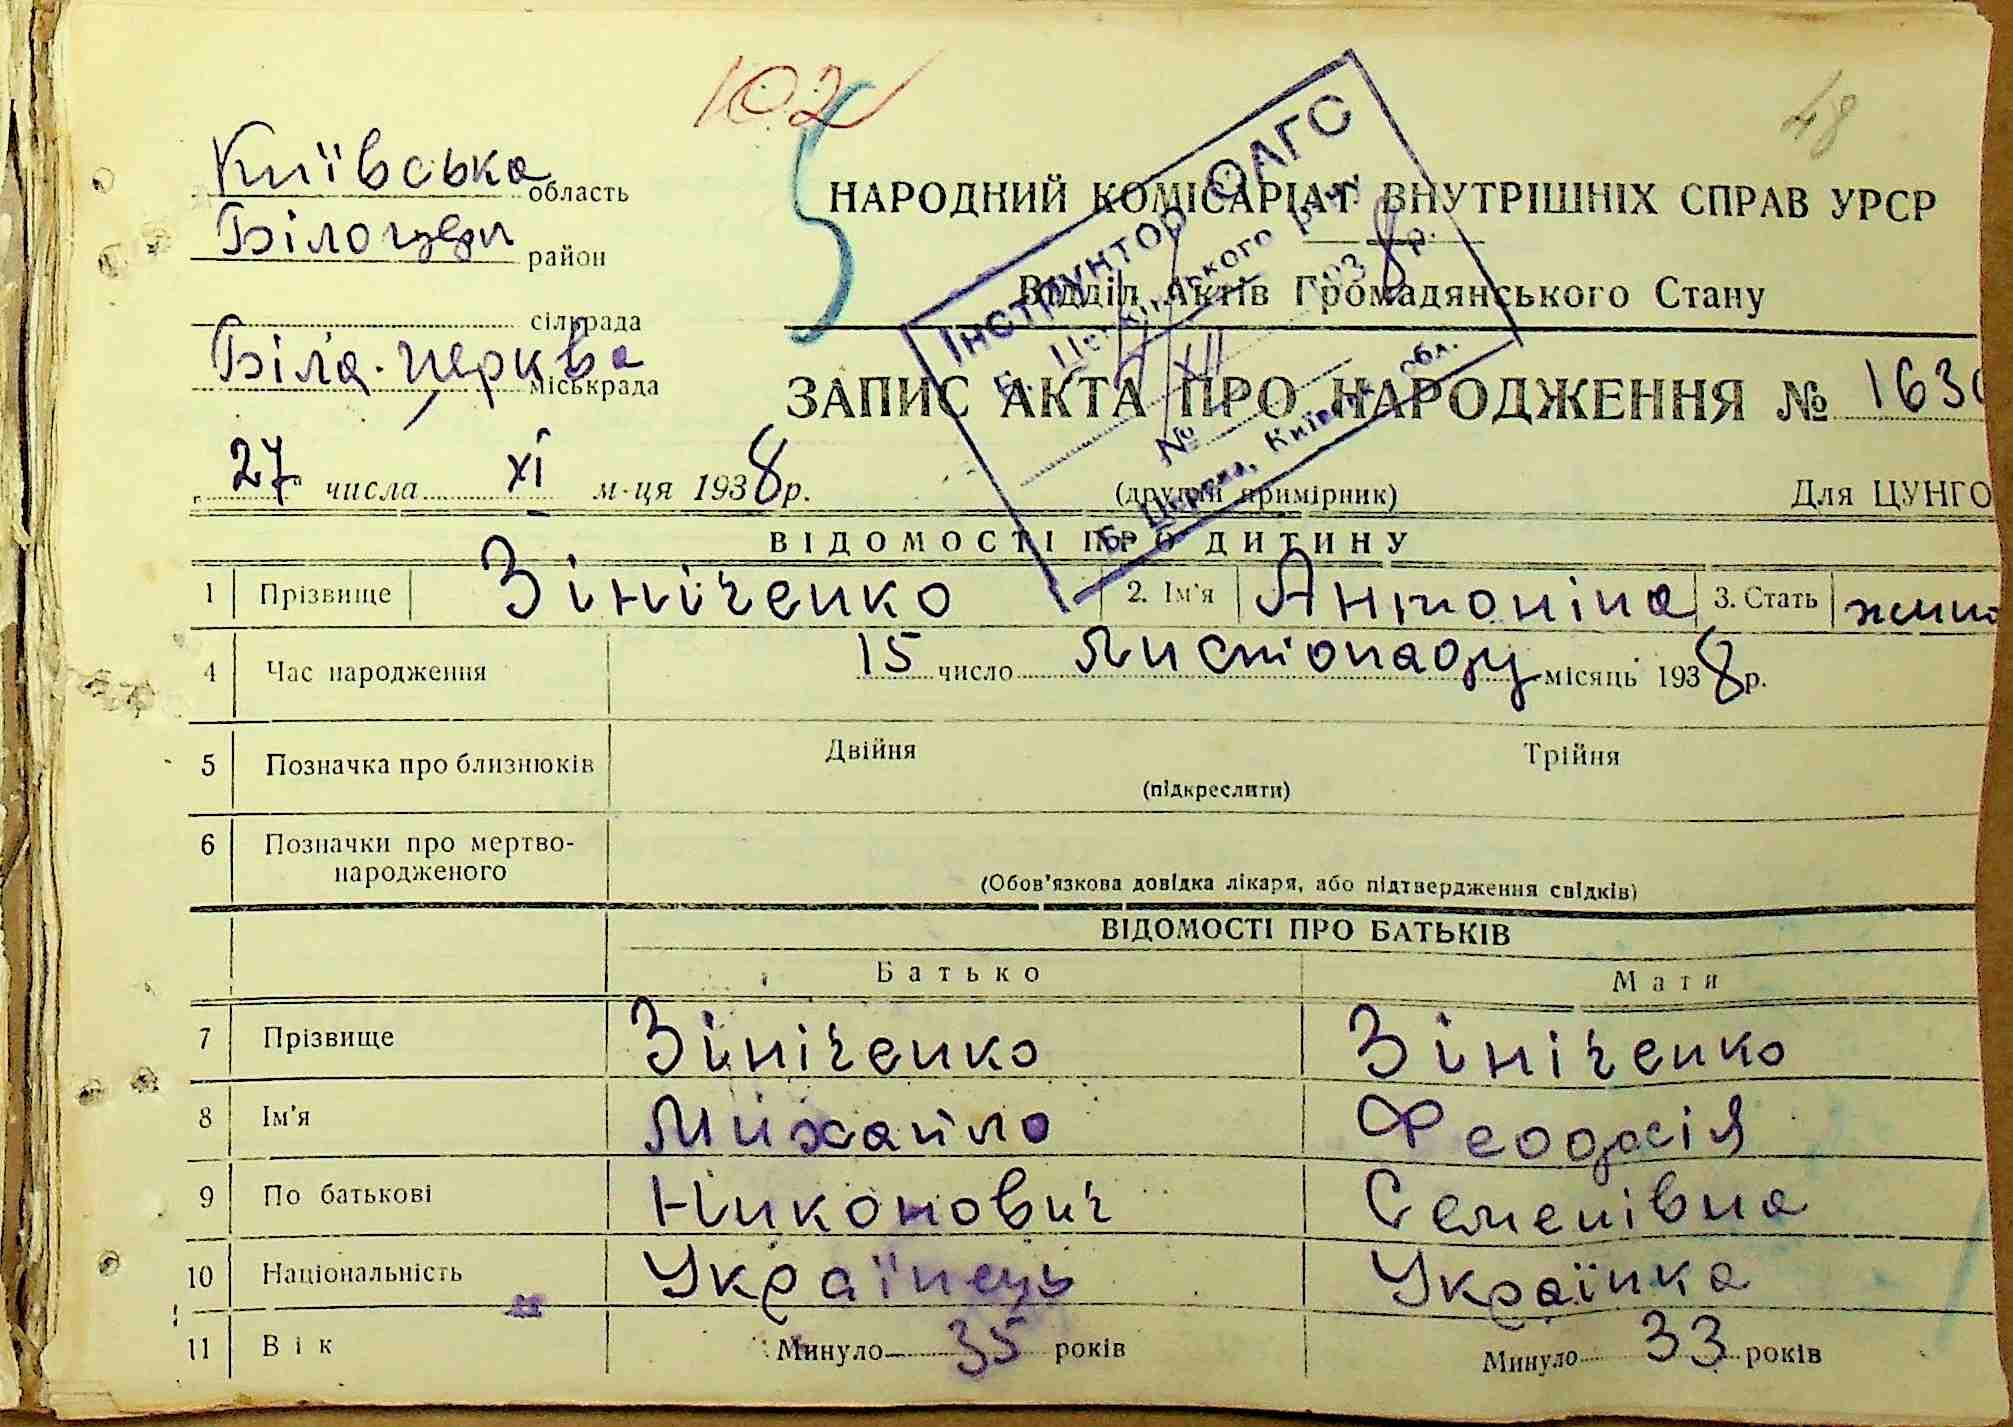 102
48
Київська область
Білоцерк район
сільрада
Біла-Церква міськрада
НАРОДНИЙ КОМІСАРІАТ ВНУТРІШНІХ СПРАВ УРСР
Відділ Актів Громадянського Стану
ІНСТРУКТОР ОАГС
Б. Церківського РВ НКВС
193 8 р.
№
Б. Церква, Київськ. обл.
ЗАПИС АКТА ПРО НАРОДЖЕННЯ № 163
27 числа XI м-ця 1938 р.
(другий примірник)
Для ЦУНГО
ВІДОМОСТІ ПРО ДИТИНУ
1 Прізвище Зініченко 2. Ім'я Антоніна 3. Стать жіно
4 Час народження 15 число Листопаду місяць 1938 р.
5 Позначка про близнюків Двійня Трійня
(підкреслити)
6 Позначки про мертво-
народженого
(Обов'язкова довідка лікаря, або підтвердження свідків)
ВІДОМОСТІ ПРО БАТЬКІВ
Батько Мати
7 Прізвище Зініченко Зініченко
8 Ім'я Михайло Феодосія
9 По батькові Никонович Семенівна
10 Національність Українець Українка
11 Вік Минуло 35 років Минуло 33 років